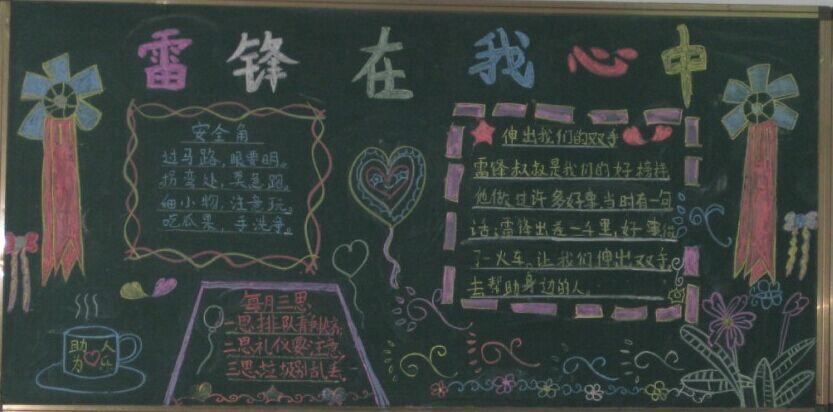 雷锋在我心中
安全角
过马路，眼要明。
拐弯处，莫急跑。
细小物，注意玩。
吃瓜果，手洗净。
伸出我们的双手
雷锋叔叔是我们的好榜样
他做过许多好事当时有一句
话:雷锋出差一千里,好事做
了一火车。让我们伸出双手
去帮助身边的人。
每月三思
一思排队静
二思礼仪要注意
三思垃圾别乱丢
助人
为乐